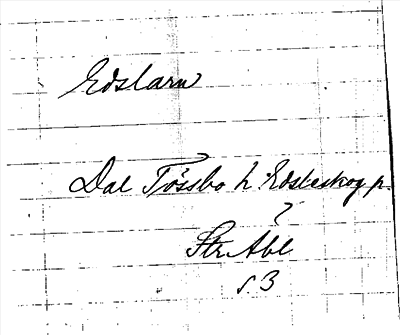 Edslarn
Dal Tössbo h. Edsleskog p.
?
Str Abl
s 3